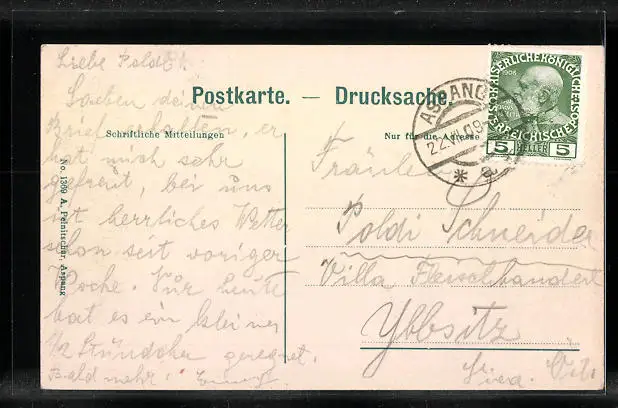 Liebe Poldi!
Soeben deinen
Brief erhalten, er
hat mich sehr
gefreut, bei uns
ist herrliches Wetter
schon seit voriger
Woche. Nur heute
hat es ein kleines
1/2 Stündchen geregnet.
Bald mehr!
Postkarte. — Drucksache.
Schriftliche Mitteilungen
Nur für die Adresse
No. 1369 A. Pelnitschar, Aspang
ASPANG
22.VII.09
a
KAISERLICHE KÖNIGLICHE
ÖSTERREICHISCHE
1908
5 HELLER 5
Fräulein
Poldi Schneider
Villa Fleischhanderl
Ybbsitz